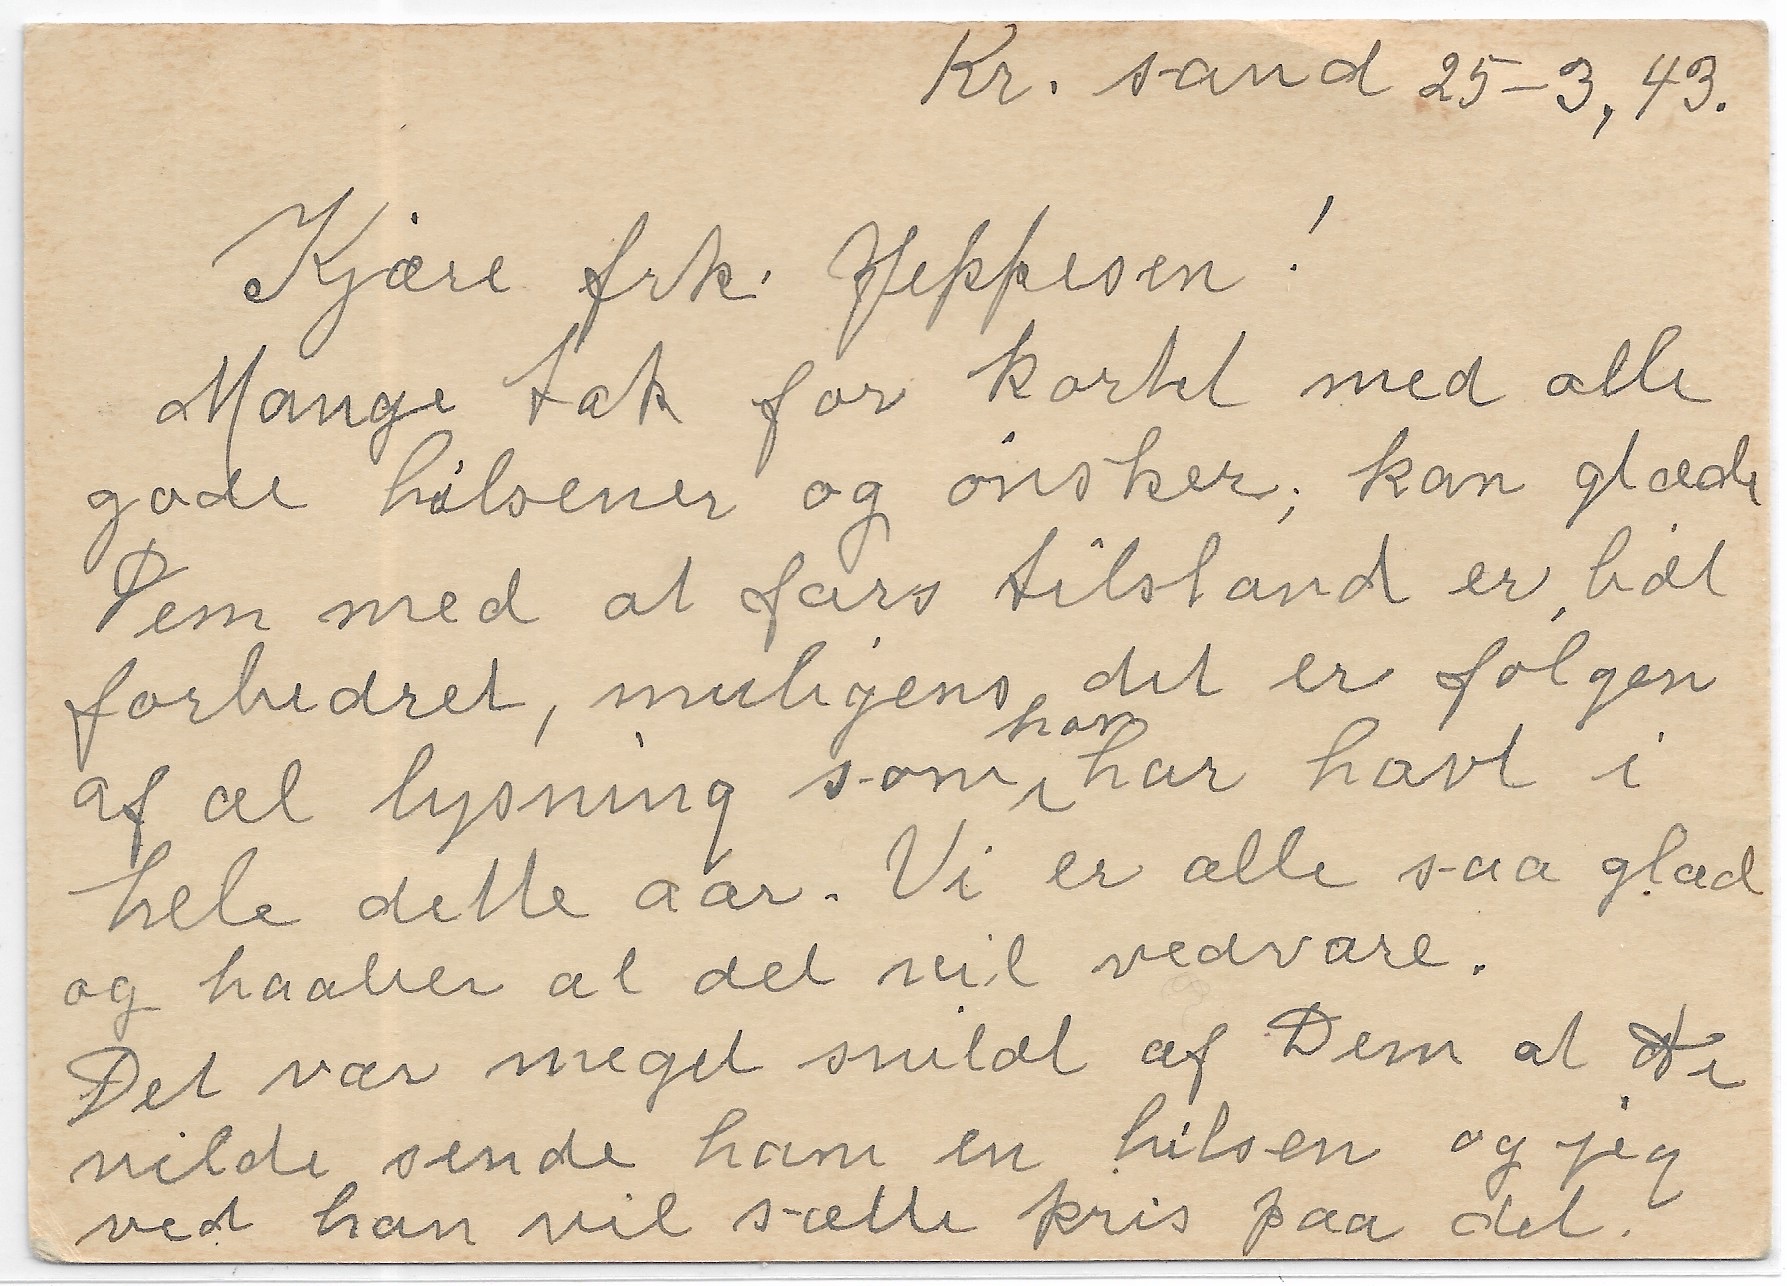 Kr. sand 25-3, 43.
Kjære frk. Jeppesen!
Mange tak for kortet med alle
gode hilsener og ønsker; kan glæde
Dem med at fars tilstand er lidt
forbedret, muligens det er følgen
af al lysning som han har havt i
hele dette aar. Vi er alle saa glad
og haaber at det vil vedvare.
Det var meget snildt af Dem at De
vilde sende ham en hilsen og jeg
ved han vil sætte pris paa det.